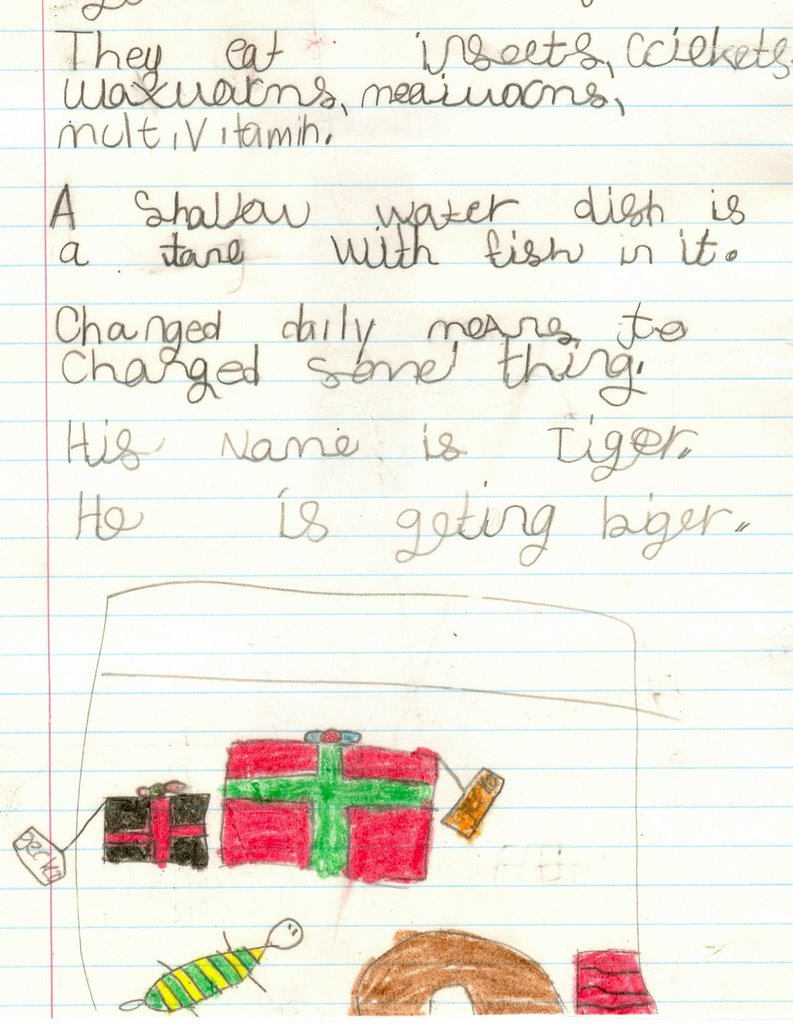 They eat insects, crickets
waxwarns, mealwarns,
multivitamin.
A Shallow water dish is
a tank with fish in it.
Changed daily means to
Changed some thing.
His Name is Tiger.
He is geting biger.
gecko